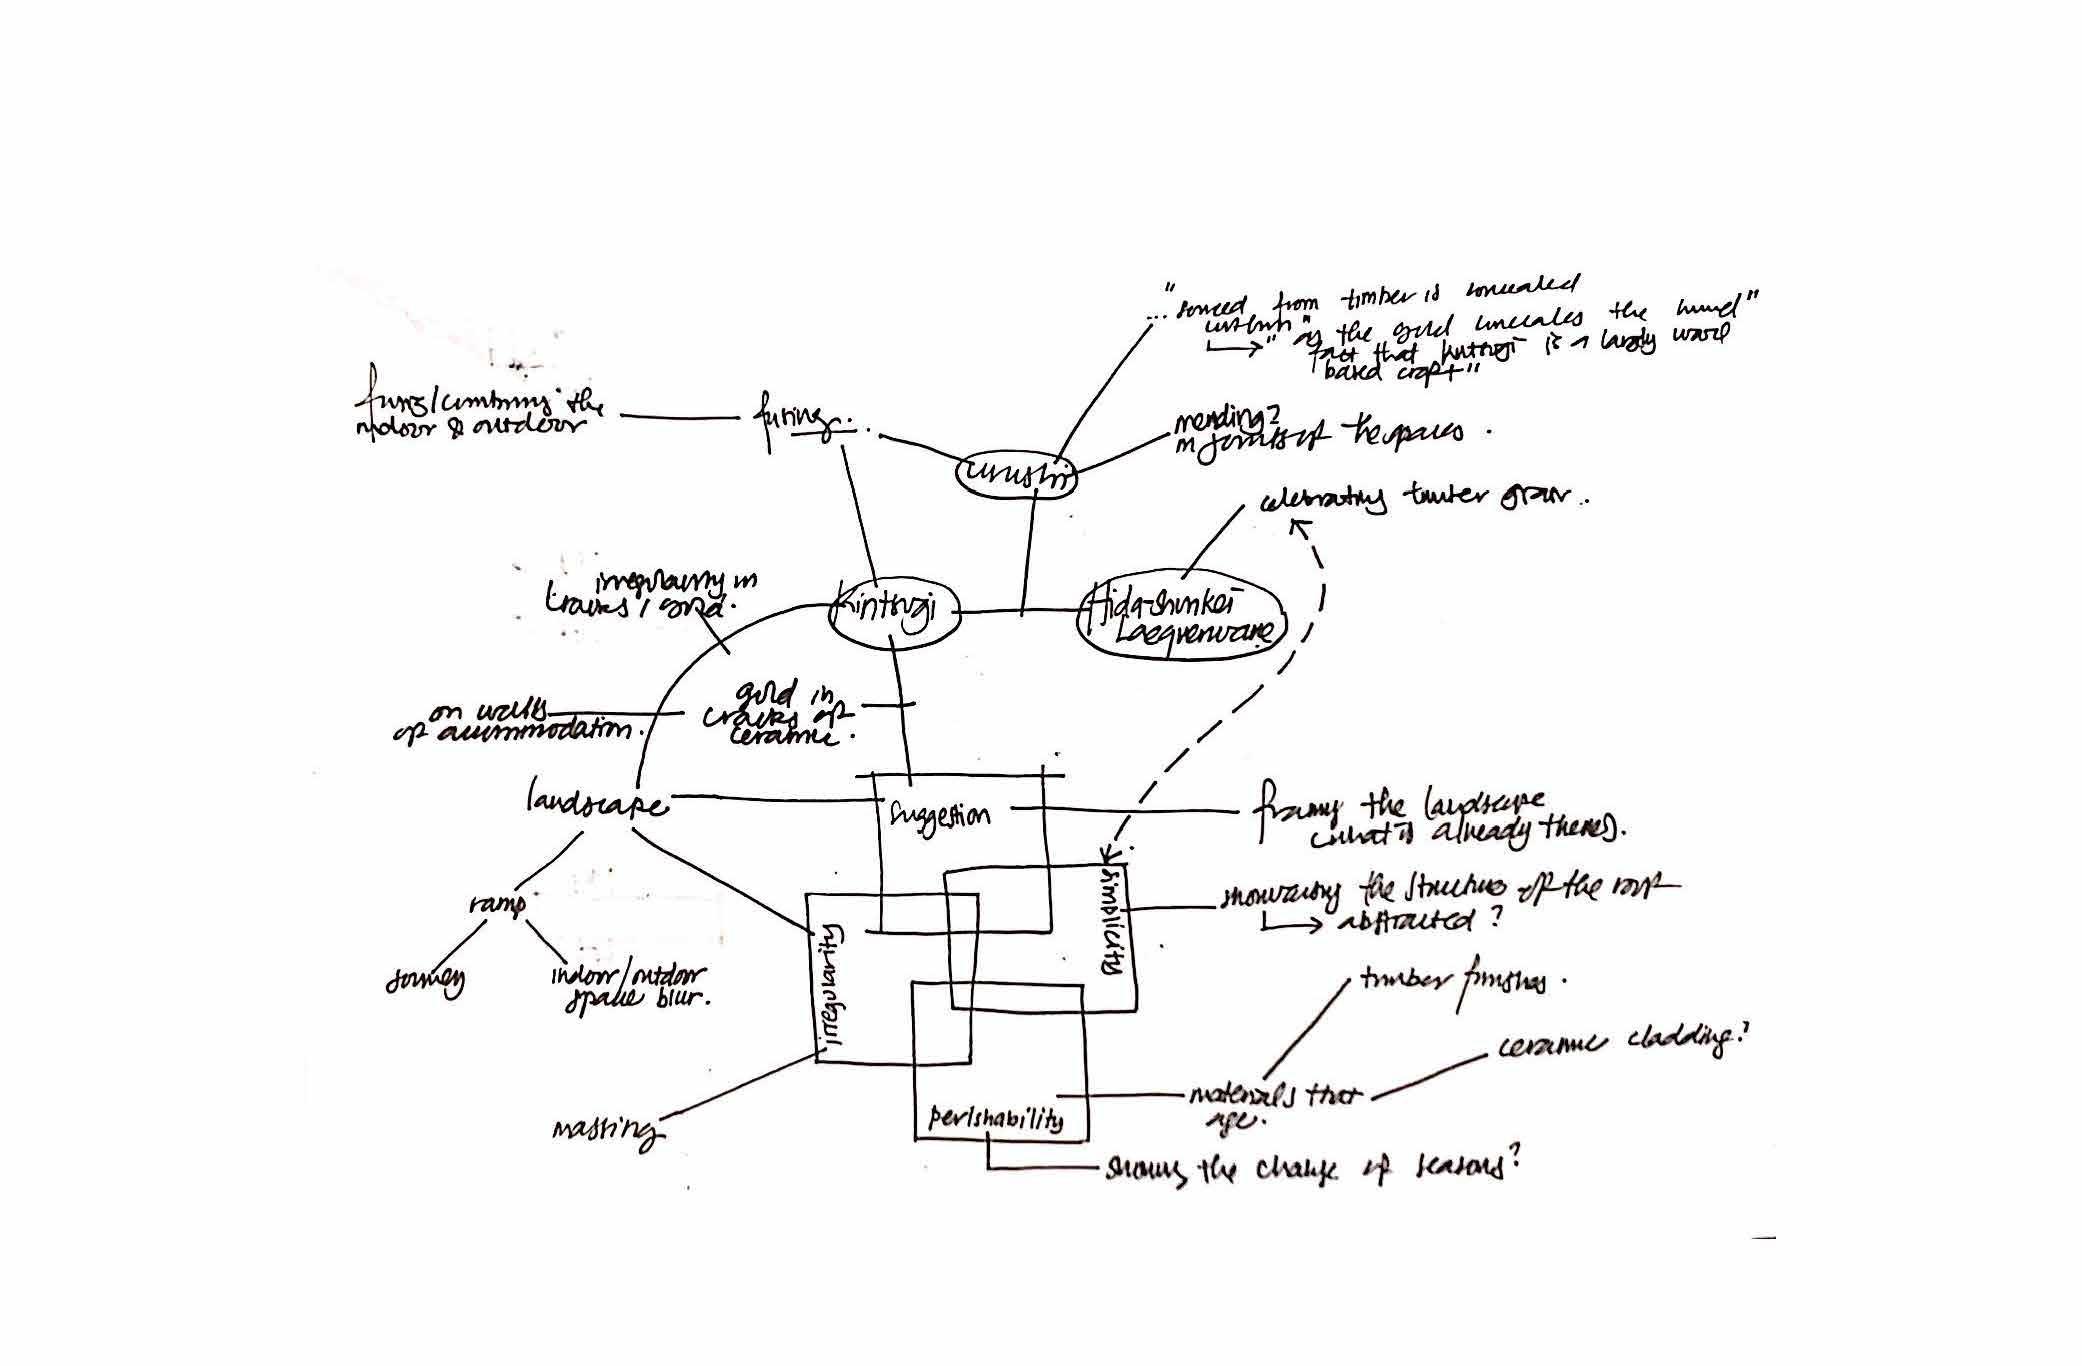 ... "sourced from timber is concealed
" as the gold conceales the
fact that kintsugi is a largely
based craft"
fusing/combining the
indoor & outdoor
fusing...
urushi
mending?
in of the spaces.
celebrating timber grain.
irregularity in
cracks / gold.
Kintsugi
Hida-Shunkei
Lacqrerware
on walls
of accommodation.
gold in
cracks of
ceramic.
landscape
suggestion
framing the landscape
(what is already there).
simplicity
showcasing the structures of the roof
abstracted?
ramp
irregularity
journey
indoor/outdoor
space blur.
timber finishes.
ceramic cladding?
materials that
age.
perishability
massing
shows the change of seasons?